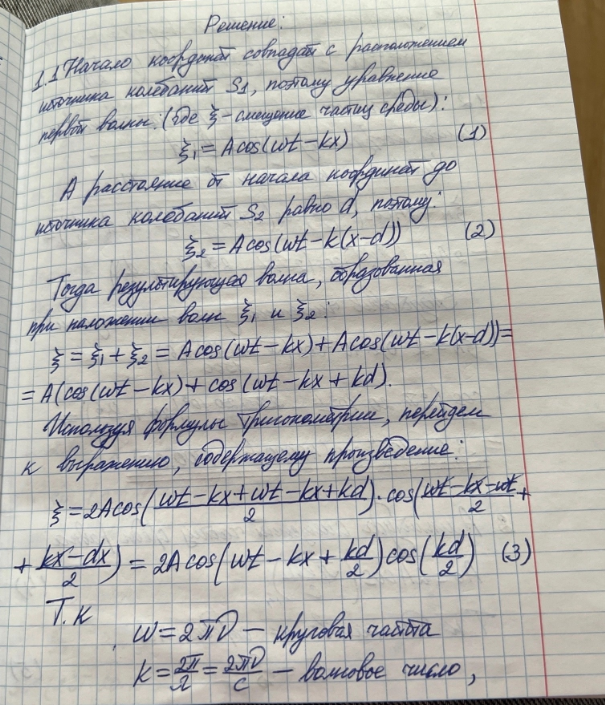 Решение:
1.1 Начало координат совпадает с расположением
источника колебаний S₁, поэтому уравнение
первой волны: (где ξ - смещение частиц среды):
ξ₁ = A cos(ωt - kx) (1)
А расстояние от начала координат до
источника колебаний S₂ равно d, поэтому:
ξ₂ = A cos(ωt - k(x-d)) (2)
Тогда результирующая волна, образованная
при наложении волн ξ₁ и ξ₂:
ξ = ξ₁ + ξ₂ = A cos(ωt - kx) + A cos(ωt - k(x-d)) =
= A(cos(ωt - kx) + cos(ωt - kx + kd).
Используя формулы тригонометрии, перейдем
к выражению, содержащему произведение:
ξ = 2A cos((ωt - kx + ωt - kx + kd)/2) · cos((ωt - kx - ωt)/2 +
+ (kx - dx)/2) = 2A cos(ωt - kx + kd/2) cos(kd/2) (3)
Т.к
ω = 2πν — круговая частота
k = 2π/λ = 2πν/c — волновое число,